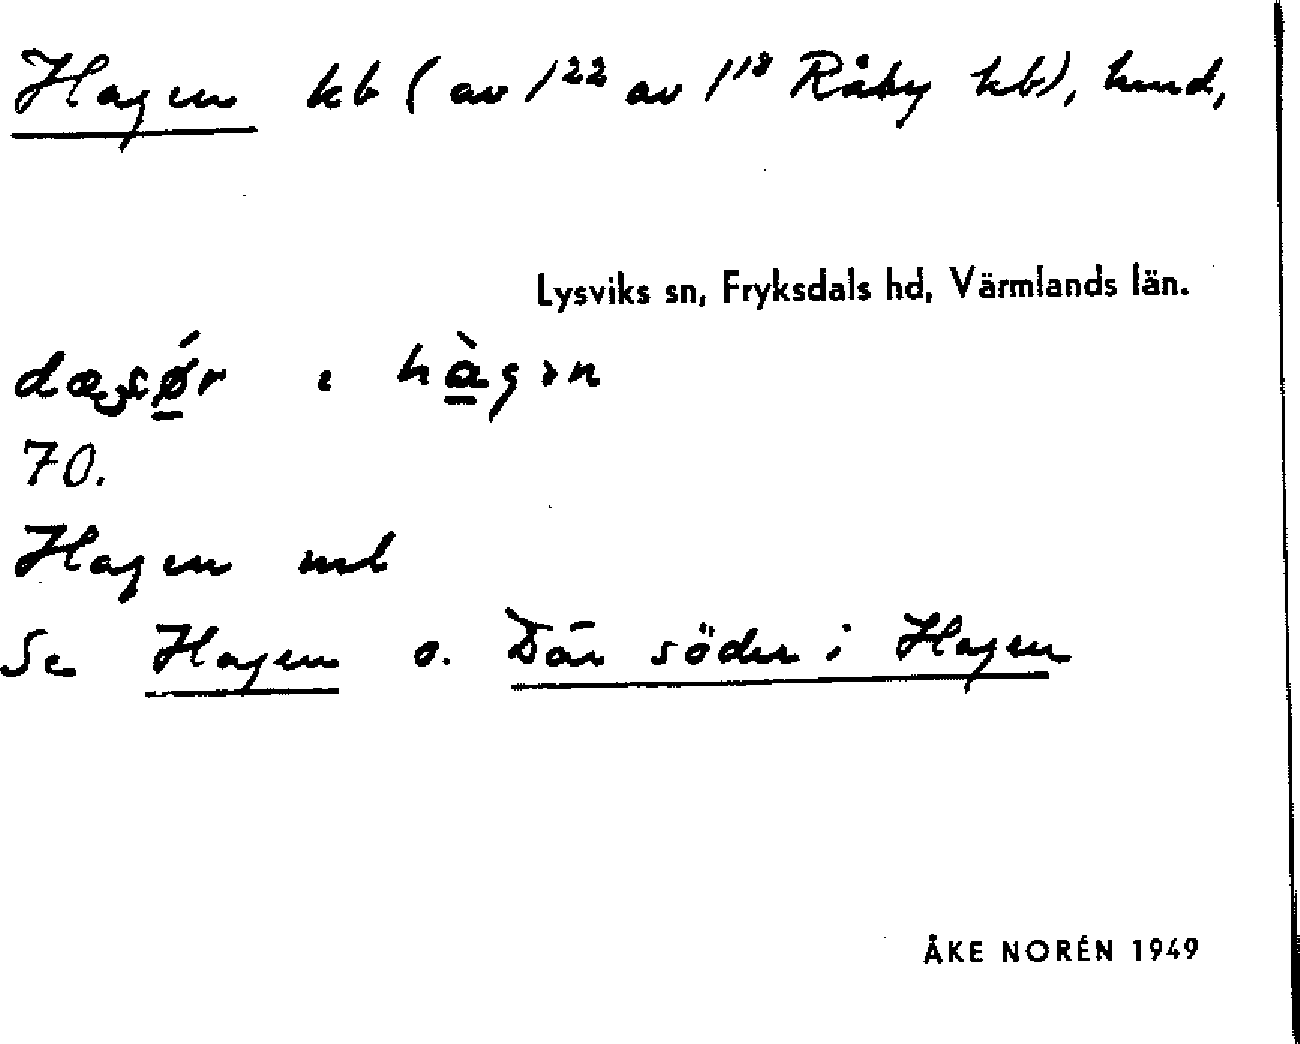 Hagen kb (av 1²² av 1¹⁸ Råby kb), hmd,
Lysviks sn, Fryksdals hd, Värmlands län.
i hàgan
70.
Hagen mb
Se Hagen o. Där söder i Hagen
ÅKE NORÉN 1949